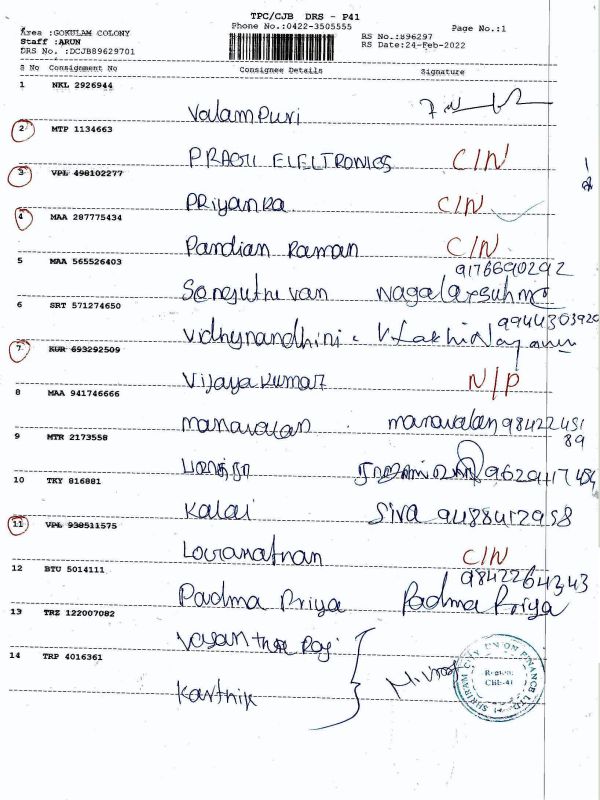 TPC/CJB DRS - P41
Phone No.:0422-3505555
Page No.:1
Area :GOKULAM COLONY
Staff :ARUN
DRS No. :DCJB89629701
RS No.:896297
RS Date:24-Feb-2022
S No Consignment No Consignee Details Signature
1 NKL 2926944
Valampuri
2 MTP 1134663
PRAGTI ELELTRONICS C/N
3 VPL 498102277
PRiyanka C/N
4 MAA 287775434
Pandian Raman C/N
5 MAA 565526403
9176690292
6 SRT 571274650
9944303920
Vidhynandhini
7 KUR 693292509
Vijaya Kumar N/P
8 MAA 941746666
manavalan manavalan 98422451
89
9 MTR 2173558
10 TKY 816881
Kalai Siva 9488412958
11 VPL 938511575
C/N
12 BTU 5014111
9842264343
Padma Priya Padma Priya
13 TRZ 122007082
14 TRP 4016361
Karthik
SHRIRAM CITY UNION FINANCE LTD
Region:
CHE-41